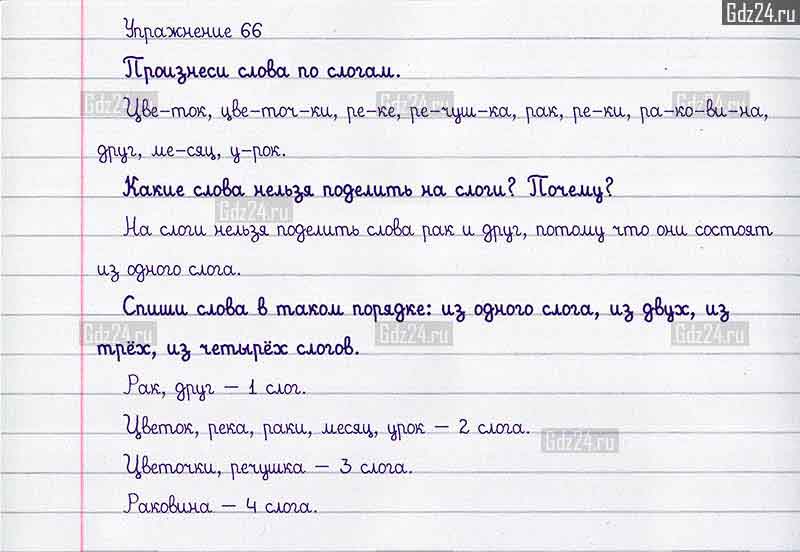 Gdz24.ru
Упражнение 66
Произнеси слова по слогам.
Gdz24.ru Gdz24.ru Gdz24.ru
Цве-ток, цве-точ-ки, ре-ке, ре-чуш-ка, рак, ре-ки, ра-ко-ви-на,
друг, ме-сяц, у-рок.
Какие слова нельзя поделить на слоги? Почему?
Gdz24.ru
На слоги нельзя поделить слова рак и друг, потому что они состоят
из одного слога.
Спиши слова в таком порядке: из одного слога, из двух, из
Gdz24.ru Gdz24.ru Gdz24.ru
трёх, из четырёх слогов.
Рак, друг – 1 слог.
Цветок, река, раки, месяц, урок – 2 слога.
Gdz24.ru
Цветочки, речушка – 3 слога.
Раковина – 4 слога.